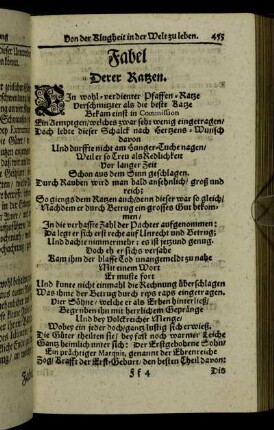 Von der Klugheit in der Welt zu leben. 455
Fabel
Derer Katzen.
EIn wohl-verdienter Pfaffen-Katze
Verschmitzter als die beste Katze
Bekam einst in Commission
Ein Aemptgen/ welches zwar sehr wenig eingetragen/
Doch lebte dieser Schalck nach Hertzens-Wunsch
davon
Und durffte nicht am Hunger-Tuche nagen/
Weil er so Treu als Redlichkeit
Vor langer Zeit
Schon aus dem Sinn geschlagen.
Durch Rauben wird man bald ansehnlich/ groß und
reich;
So giengs dem Katzen auch/ denn dieser war so gleich/
Nachdem er durch Betrug ein grosses Gut bekom-
men/
In die verhaßte Zahl der Pachter auffgenommen:
Da legt er sich erst recht auf Unrecht und Betrug;
Und dachte nimmermehr: es ist jezund genug.
Doch eh er sichs versahe
Kam ihm der blasse Tod unangemeldt zu nahe
Mit einem Wort
Er muste fort
Und kunte nicht einmahl die Rechnung überschlagen
Was ihme der Betrug durch rips raps eingetragen.
Vier Söhne/ welche er als Erben hinterließ/
Begruben ihn mit herrlichem Gepränge
Und bey Volckreicher Menge/
Wobey ein jeder doch gantz lustig sich erwieß.
Die Güter theilten sie/ bey fast noch warmer Leiche
Gantz heimlich unter sich: Der Erstgebohrne Sohn/
Ein prächtiger Marqvis, genannt der Ehrenreiche
Zog/ Krafft der Erst-Geburt/ den besten Theil davon:
Ff 4 Die